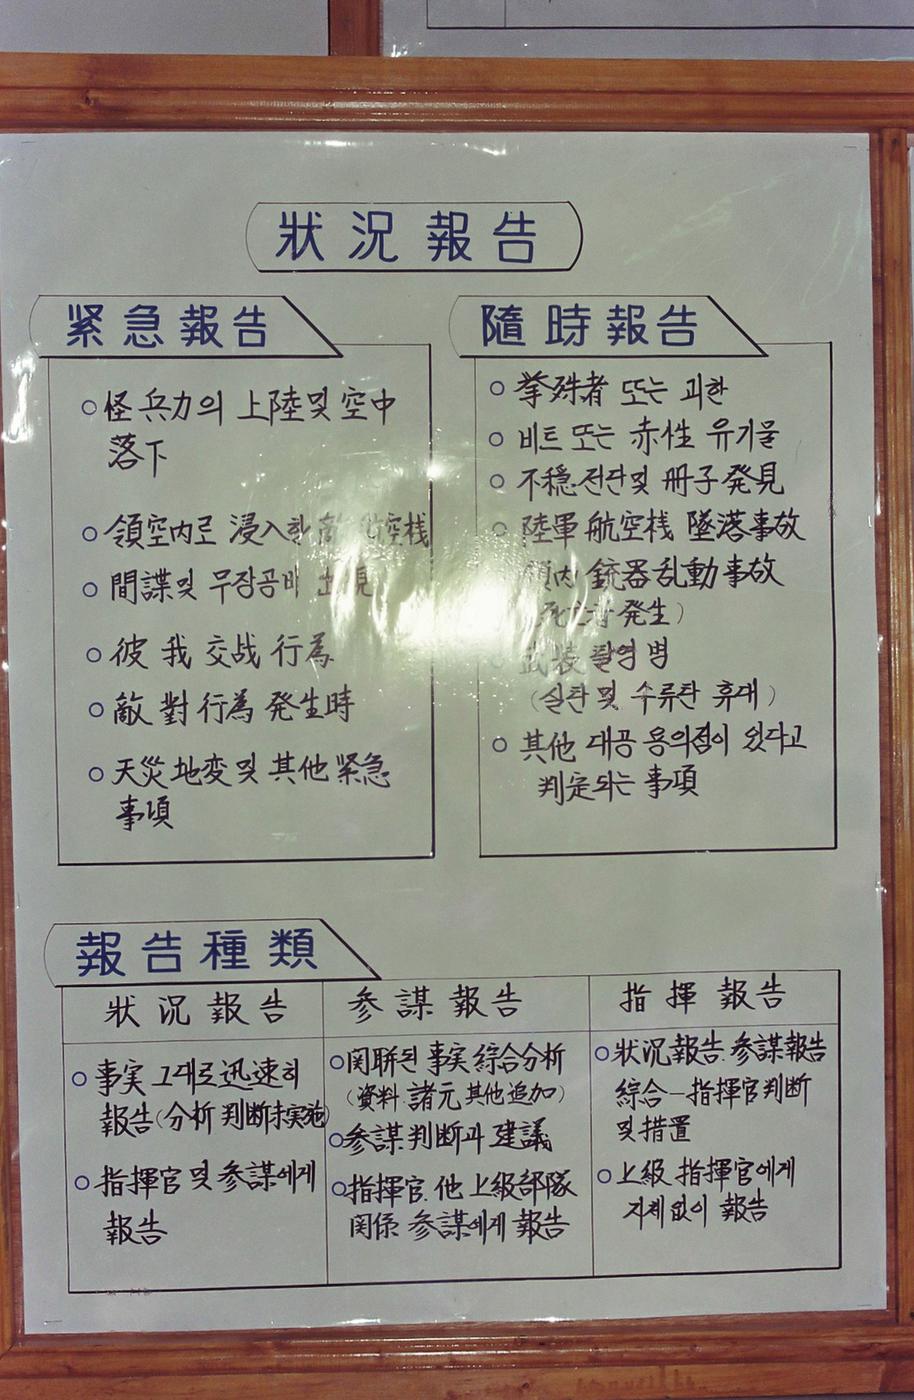 狀況報告
緊急報告
○ 怪兵力의 上陸및 空中
落下
○ 領空內로 浸入한 敵 航空栈
○ 間諜및 무장공비 出現
○ 彼我 交战 行為
○ 敵對行為 発生時
○ 天災地変 및 其他 紧急
事項
隨時報告
○ 또는 괴한
○ 비트 또는 赤性 유기물
○ 不穩전단및 冊子 発見
○ 陸軍 航空栈 墜落事故
銃器乱動事故
発生)
(실탄 및 수류탄 휴대)
○ 其他 대공 용의점이 있다고
判定되는 事項
報告種類
狀況報告
○ 事実 그대로 迅速히
報告(分析 判断 未実施)
○ 指揮官 및 参謀에게
報告
参謀報告
○ 関联된 事実 綜合分析
(資料.諸元 其他追加)
○ 参謀判断과 建議
○ 指揮官. 他 上級部隊
関係 参謀에게 報告
指揮報告
○ 狀況報告. 参謀報告
綜合-指揮官判断
및 措置
○ 上級 指揮官에게
지체없이 報告